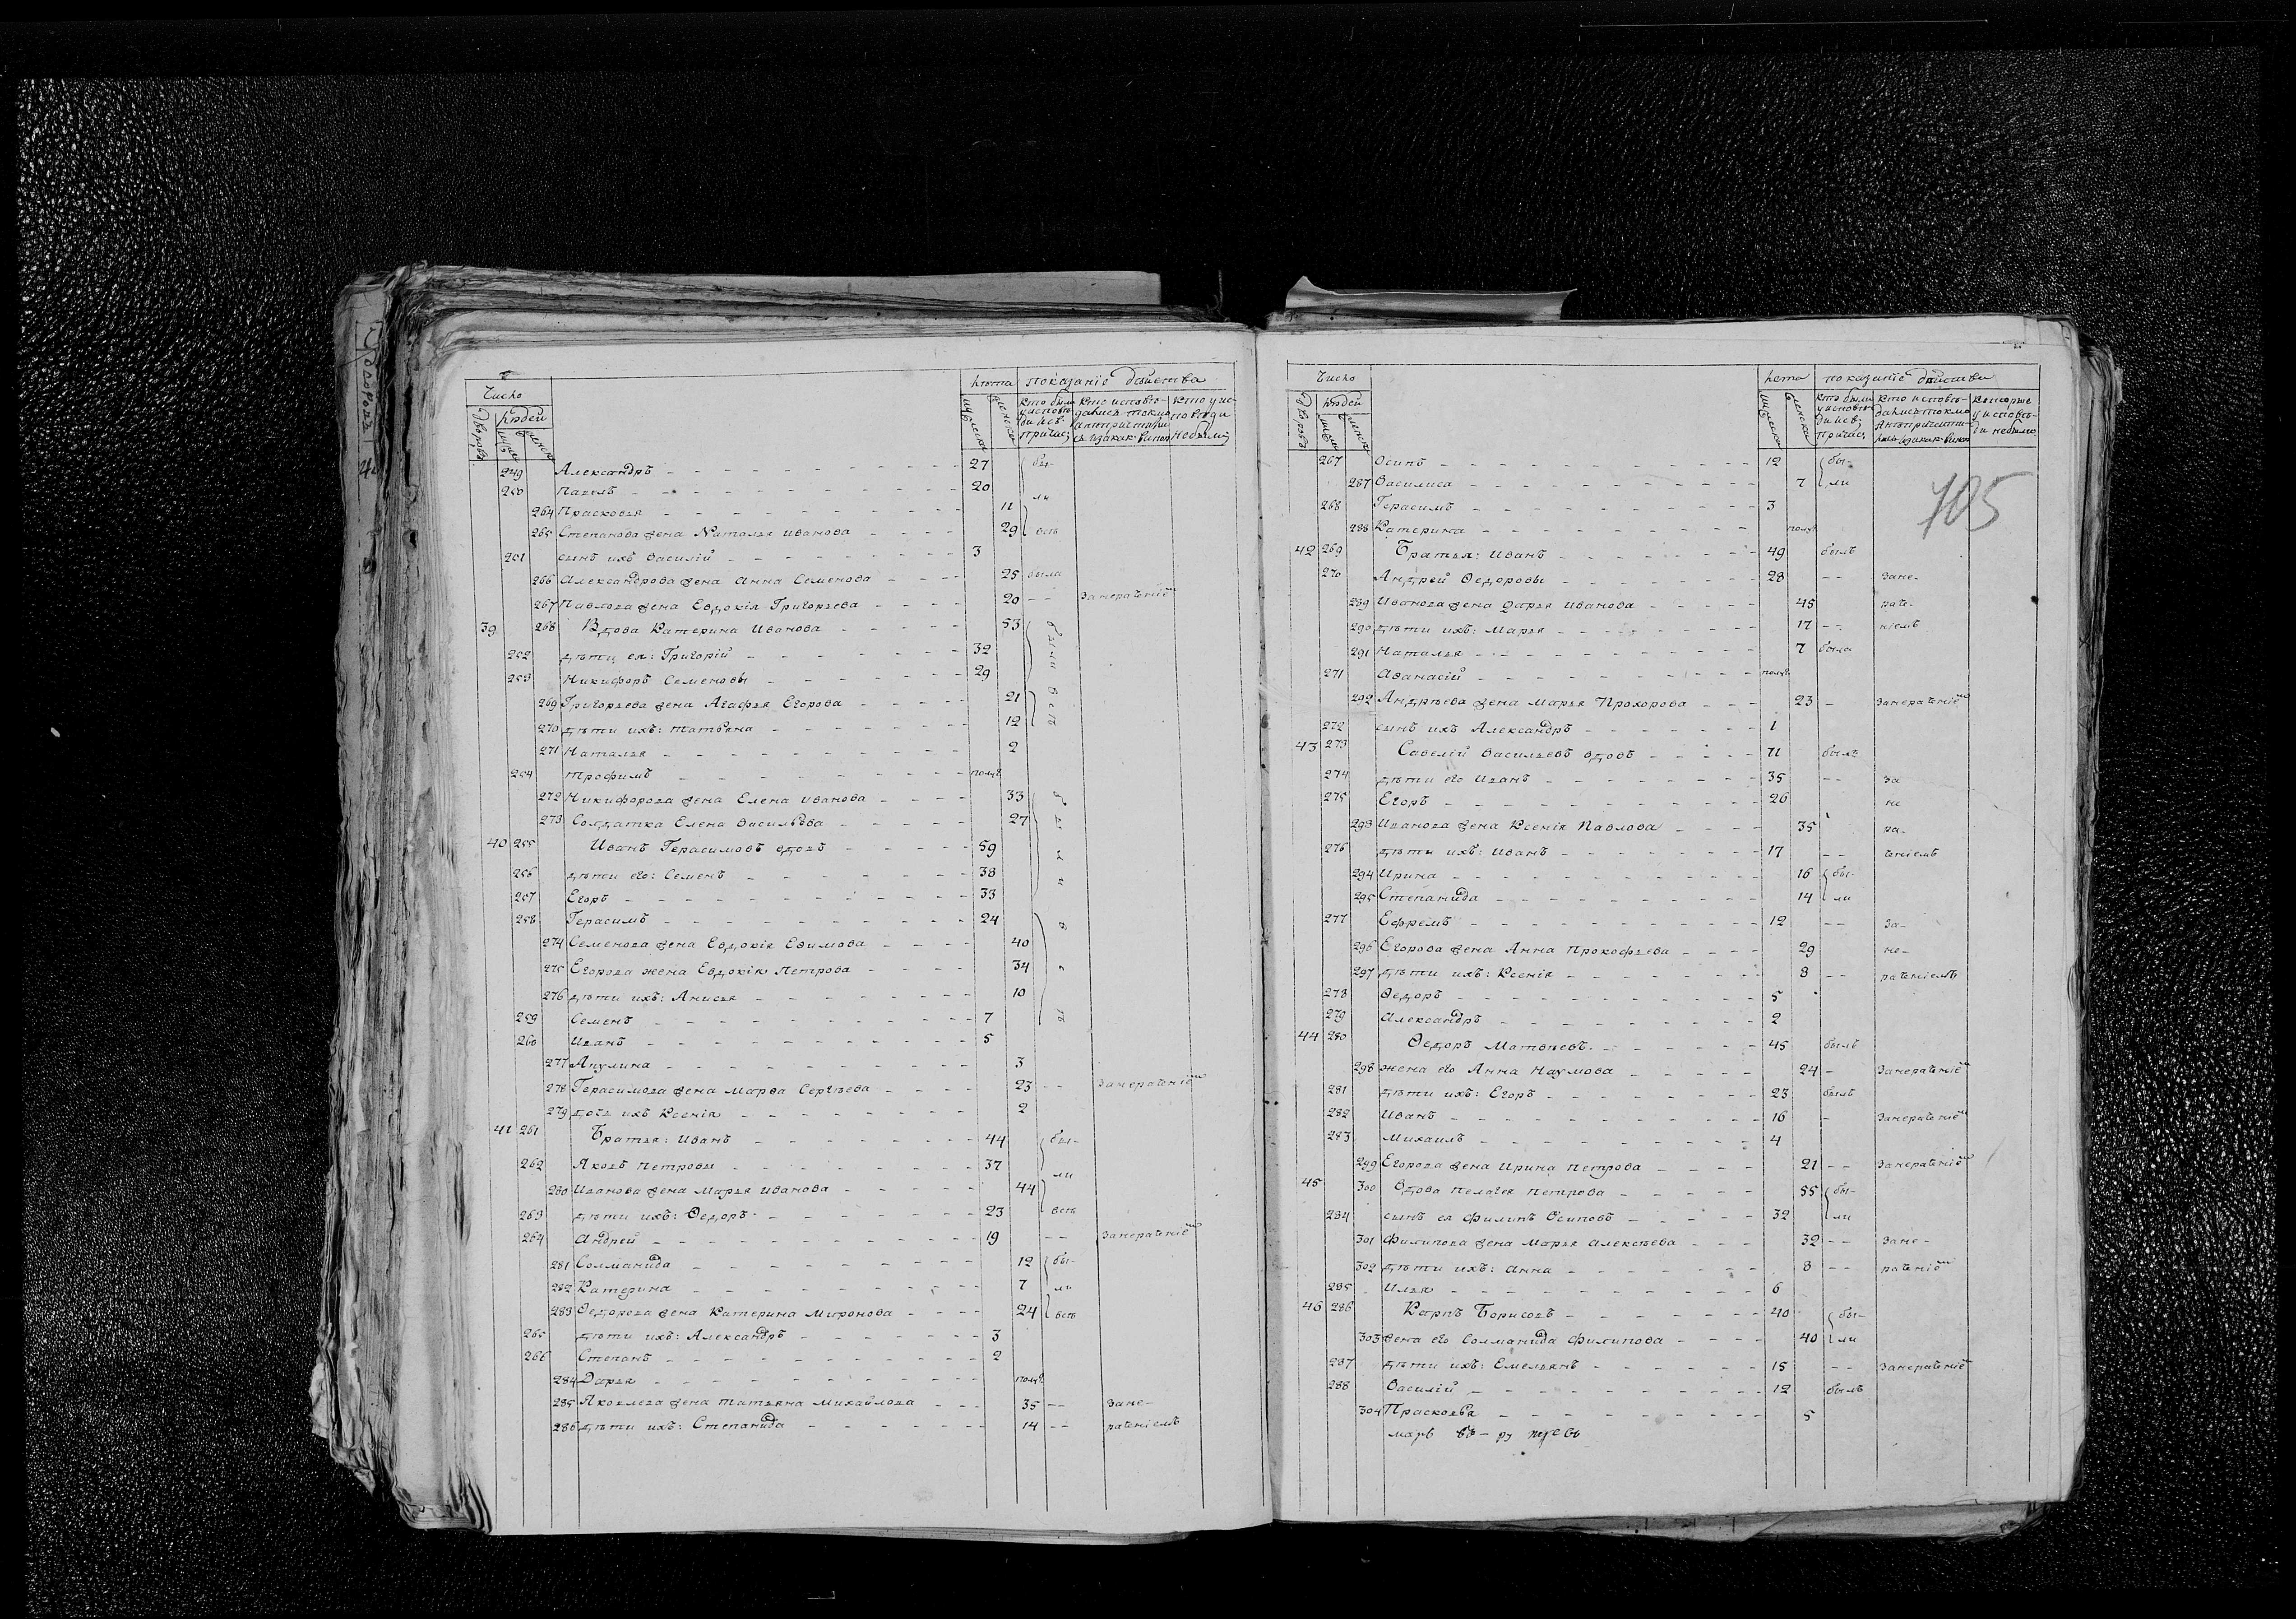 Число
лѣта показанiе дѣйства
Дворовъ
людей
мужеска
женска
кто были у исповѣди и св: причас;
кто исповѣдались токмо а не причастились и за какъ виною
кто у исповѣди не были
249 Александръ 27 бы-
250 Павелъ 20 ли
264 Прасковья 11
265 Степанова жена Наталья Иванова 29 всѣ
251 сынъ ихъ Василiй 3
266 Александрова жена Анна Семенова 25 была
267 Павлова жена Евдокiя Григорьева 20 -- занераченiем
39 268 Вдова Катерина Иванова 53 были
252 дѣти ея: Григорiй 32
253 Никифоръ Семеновы 29
269 Григорьева жена Агафья Егорова 21 всѣ
270 дѣти ихъ: Татьяна 12
271 Наталья 2
254 Трофимъ полуг.
272 Никифорова жена Елена Иванова 33 были
273 Солдатка Елена Васильева 27
40 255 Иванъ Герасимовъ вдовъ 59
256 дѣти его: Семенъ 38
257 Егоръ 33
258 Герасимъ 24 всѣ
274 Семенова жена Евдокiя Ефимова 40
275 Егорова жена Евдокiя Петрова 34
276 дѣти ихъ: Анисья 10
259 Семенъ 7
260 Иванъ 5
277 Акулина 3
278 Герасимова жена Марѳа Сергѣева 23 -- занераченiем
279 дочь ихъ Ксенiя 2
41 261 Братья: Иванъ 44 бы-
262 Яковъ Петровы 37 ли
280 Иванова жена Марья Иванова 44
263 дѣти ихъ: Ѳедоръ 23 всѣ
264 Андрей 19 -- занераченiем
281 Соломанида 12 бы-
282 Катерина 7 ли
283 Ѳедорова жена Катерина Миронова 24 всѣ
265 дѣти ихъ: Александръ 3
266 Степанъ 2
284 Дарья полуг.
285 Яковлева жена Татьяна Михайлова 35 -- зане-
286 дѣти ихъ: Степанида 14 -- раченiемъ
Число
лета показанiе дѣйства
Дворовъ
людей
мужеска
женска
кто были у исповѣди и св; причас;
кто исповѣдались токмо а не причастились и за какъ виною
которые у исповѣди не были
105
267 Осипъ 12 бы-
287 Василиса 7 ли
268 Герасимъ 3
288 Катерина полуг.
42 269 Братья: Иванъ 49 былъ
270 Андрей Ѳедоровы 28 -- зане-
289 Иванова жена Дарья Иванова 45 раче-
290 дѣти ихъ: Марья 17 -- нiемъ
291 Наталья 7 была
271 Аѳанасiй полуг.
292 Андрѣева жена Марья Прохорова 23 - занераченiем
272 сынъ ихъ Александръ 1
43 273 Савелiй Васильевъ вдовъ 71 былъ
274 дѣти его Иванъ 35 -- за
275 Егоръ 26 не
293 Иванова жена Ксенiя Павлова 35 ра-
276 дѣти ихъ: Иванъ 17 -- ченiемъ
294 Ирина 16 бы-
295 Степанида 14 ли
277 Ефремъ 12 -- за-
296 Егорова жена Анна Прокофьева 29 не-
297 дѣти ихъ: Ксенiя 8 -- раченiемъ
278 Ѳедоръ 5
279 Александръ 2
44 280 Ѳедоръ Матвѣевъ 45 былъ
298 жена его Анна Наумова 24 - занераченiем
281 дѣти ихъ: Егоръ 23 былъ
282 Иванъ 16 - занераченiем
283 Михаилъ 4
299 Егорова жена Ирина Петрова 21 -- занераченiем
45 300 Вдова Пелагея Петрова 55 бы-
284 сынъ ея Филипъ Осиповъ 32 ли
301 Филипова жена Марья Алексѣева 32 -- зане-
302 дѣти ихъ: Анна 8 -- раченiем
285 Илья 6
46 286 Карпъ Борисовъ 40 бы-
303 жена его Соломанида Филипова 40 ли
287 дѣти ихъ: Емельянъ 15 -- занераченiем
288 Василiй 12 былъ
304 Прасковья 5